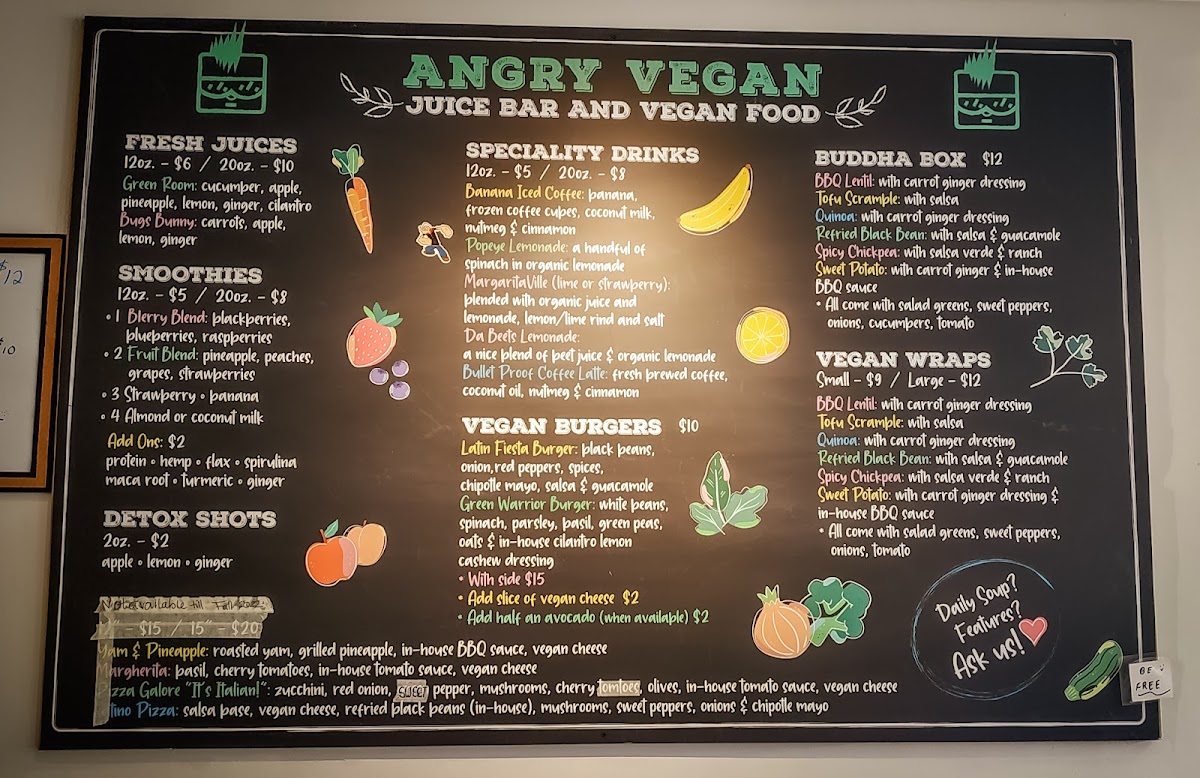 ANGRY VEGAN
JUICE BAR AND VEGAN FOOD
FRESH JUICES
12oz. - $6 / 20oz. - $10
Green Room: cucumber, apple,
pineapple, lemon, ginger, cilantro
Bugs Bunny: carrots, apple,
lemon, ginger
SMOOTHIES
12oz. - $5 / 20oz. - $8
• 1 Blerry Blend: blackberries,
blueberries, raspberries
• 2 Fruit Blend: pineapple, peaches,
grapes, strawberries
• 3 Strawberry • banana
• 4 Almond or coconut milk
Add Ons: $2
protein • hemp • flax • spirulina
maca root • turmeric • ginger
DETOX SHOTS
2oz. - $2
apple • lemon • ginger
SPECIALITY DRINKS
12oz. - $5 / 20oz. - $8
Banana Iced Coffee: banana,
frozen coffee cubes, coconut milk,
nutmeg & cinnamon
Popeye Lemonade: a handful of
spinach in organic lemonade
MargaritaVille (lime or strawberry):
blended with organic juice and
lemonade, lemon/lime rind and salt
Da Beets Lemonade:
a nice blend of beet juice & organic lemonade
Bullet Proof Coffee Latte: fresh brewed coffee,
coconut oil, nutmeg & cinnamon
VEGAN BURGERS $10
Latin Fiesta Burger: black beans,
onion,red peppers, spices,
chipotle mayo, salsa & guacamole
Green Warrior Burger: white beans,
spinach, parsley, basil, green peas,
oats & in-house cilantro lemon
cashew dressing
• With side $15
• Add slice of vegan cheese $2
• Add half an avocado (when available) $2
BUDDHA BOX $12
BBQ Lentil: with carrot ginger dressing
Tofu Scramble: with salsa
Quinoa: with carrot ginger dressing
Refried Black Bean: with salsa & guacamole
Spicy Chickpea: with salsa verde & ranch
Sweet Potato: with carrot ginger & in-house
BBQ sauce
• All come with salad greens, sweet peppers,
onions, cucumbers, tomato
VEGAN WRAPS
Small - $9 / Large - $12
BBQ Lentil: with carrot ginger dressing
Tofu Scramble: with salsa
Quinoa: with carrot ginger dressing
Refried Black Bean: with salsa & guacamole
Spicy Chickpea: with salsa verde & ranch
Sweet Potato: with carrot ginger dressing &
in-house BBQ sauce
• All come with salad greens, sweet peppers,
onions, tomato
Not available till Fall 2022
12" - $15 / 15" - $20
Yam & Pineapple: roasted yam, grilled pineapple, in-house BBQ sauce, vegan cheese
Margherita: basil, cherry tomatoes, in-house tomato sauce, vegan cheese
Pizza Galore "It's Italian!": zucchini, red onion, sweet pepper, mushrooms, cherry tomtoes, olives, in-house tomato sauce, vegan cheese
tino Pizza: salsa base, vegan cheese, refried black beans (in-house), mushrooms, sweet peppers, onions & chipotle mayo
Daily Soup?
Features?
Ask us!
BE
FREE
$12
$10